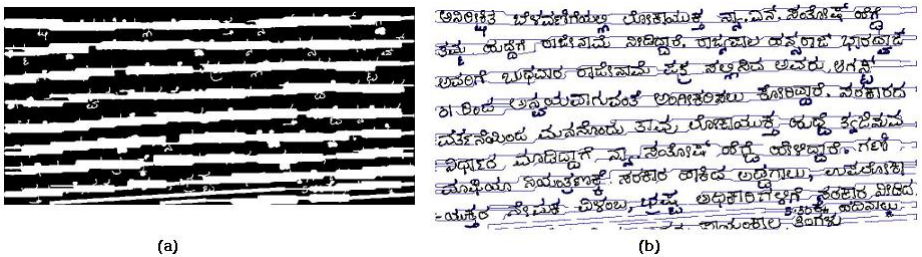 ಅನಿರೀಕ್ಷಿತ ಬೆಳವಣಿಗೆಯಲ್ಲಿ ಲೋಕಾಯುಕ್ತ ನ್ಯಾ. ಎನ. ಸಂತೋಷ್ ಹೆಗ್ಡೆ
ತಮ್ಮ ಹುದ್ದೆಗೆ ರಾಜೀನಾಮೆ ನೀಡಿದ್ದಾರೆ. ರಾಜ್ಯಪಾಲ ಹನ್ಸರಾಜ್ ಭಾರದ್ವಾಜ್
ಅವರಿಗೆ ಬುಧವಾರ ರಾಜೀನಾಮೆ ಪತ್ರ ಸಲ್ಲಿಸಿದ ಅವರು, ಆಗಸ್ಟ್
೩೧.ರಿಂದ ಅನ್ವಯವಾಗುವಂತೆ ಅಂಗೀಕರಿಸಲು ಕೋರಿದ್ದಾರೆ. ಸರಕಾರದ
ವರ್ತನೆಯಿಂದ ಮನನೊಂದು ತಾವು ಲೋಕಾಯುಕ್ತ ಹುದ್ದೆ ತ್ಯಜಿಸುವ
ನಿರ್ಧಾರ ಮಾಡಿದ್ದಾಗಿ ನ್ಯಾ ಸಂತೋಷ್ ಹೆಗ್ಡೆ ಹೇಳಿದ್ದಾರೆ. ಗಣಿ
ಮಾಫಿಯಾ ನಿಯಂತ್ರಣಕ್ಕೆ ಸರಕಾರ ಹಾಕಿದ ಅಡ್ಡಗಾಲು, ಉಪಲೋಕಾ
-ಯುಕ್ತರ ನೇಮಕ ವಿಳಂಬ, ಭ್ರಷ್ಟ ಅಧಿಕಾರಿಗಳಿಗೆ ಸರಕಾರ ನೀಡಿದ
ತಿಂಗಳು
(a) (b)